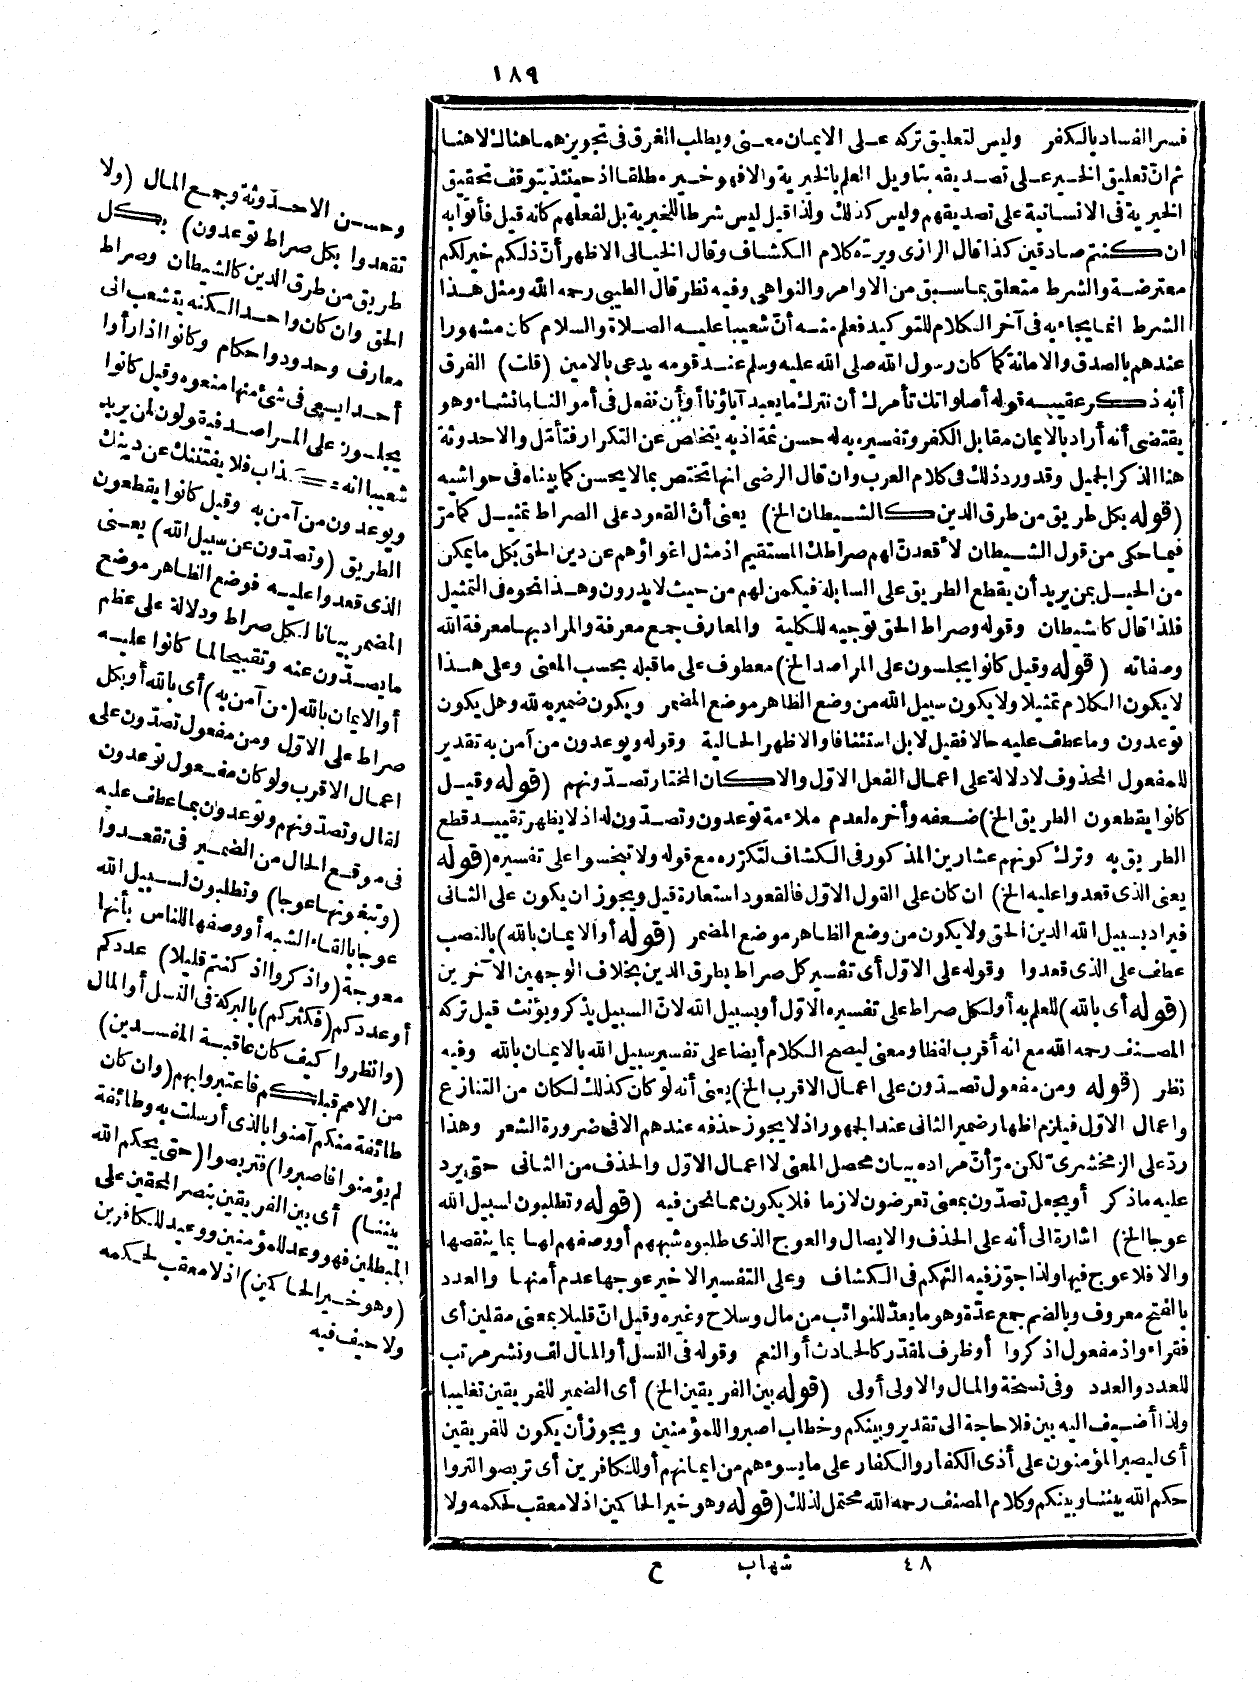 ١٨٩
فسر الفساد بالكفر وليس لتعليق تركه على الايمان معنى ويطلب الفرق فى تجويزهما هنالك لا هنا
ثم انّ تعليق الخير على تصديقه بتأويل العلم بالخيرية والا فهو خير مطلقا اذ حينئذ يتوقف تحقيق
الخيرية فى الانسانية على تصديقهم وليس كذلك ولذا قيل ليس شرطا للخيرية بل لفعلهم كانه قيل فأتوا به
ان كنتم صادقين كذا قال الرازى ويردّه كلام الكشاف وقال الخيالى الاظهر أنّ ذلكم خير لكم
معترضة والشرط متعلق بما سبق من الاوامر والنواهى وفيه نظر قال الطيبى رحمه الله ومثل هذا
الشرط انما يجاء به فى آخر الكلام للتوكيد فعلم منه أنّ شعيبا عليه الصلاة والسلام كان مشهورا
عندهم بالصدق والامانة كما كان رسول الله صلى الله عليه وسلم عند قومه يدعى بالامين (قلت) الفرق
أنه ذكر عقيبه قوله أصلواتك تأمرك أن نترك ما يعبد آباؤنا أو أن نفعل فى أموالنا ما نشاء وهو
يقتضى أنه أراد بالايمان مقابل الكفر وتفسيره به له حسن ثمة اذ به يتخلص عن التكرار فتأمّل والاحدوثة
هنا الذكر الجميل وقد ورد ذلك فى كلام العرب وان قال الرضى انها تختص بما لا يحسن كما بيناه فى حواشيه
(قوله بكل طريق من طرق الدين كالشيطان الخ) يعنى أنّ القعود على الصراط تمثيل كما مرّ
فيما حكى من قول الشيطان لأقعدنّ لهم صراطك المستقيم اذ مثل اغواؤهم عن دين الحق بكل ما يمكن
من الحيل بمن يريد أن يقطع الطريق على السابلة فيكمن لهم من حيث لا يدرون وهذا نحوه فى التمثيل
فلذا قال كالشيطان وقوله وصراط الحق توجيه للكلية والمعارف جمع معرفة والمراد بها معرفة الله
وصفاته (قوله وقيل كانوا يجلسون على المراصد الخ) معطوف على ما قبله بحسب المعنى وعلى هذا
لا يكون الكلام تمثيلا ولا يكون سبيل الله من وضع الظاهر موضع المضمر ويكون ضمير به لله وهل يكون
توعدون وما عطف عليه حالا فقيل لا بل استئنافا والاظهر الحالية وقوله ويوعدون من آمن به تقدير
للمفعول المحذوف لا دلالة على اعمال الفعل الاوّل والا كان المختار تصدّونهم (قوله وقيل
كانوا يقطعون الطريق الخ) ضعفه وأخره لعدم ملاءمة توعدون وتصدّون له اذ لا يظهر تقييد قطع
الطريق به وترك كونهم عشارين المذكور فى الكشاف لتكرّره مع قوله ولا تبخسوا على تفسيره (قوله
يعنى الذى قعدوا عليه الخ) ان كان على القول الاوّل فالقعود استعارة قيل ويجوز ان يكون على الثانى
فيراد بسبيل الله الدين الحق ولا يكون من وضع الظاهر موضع المضمر (قوله أو الايمان بالله) بالنصب
عطف على الذى قعدوا وقوله على الاوّل أى تفسير كل صراط بطرق الدين بخلاف الوجهين الآخرين
(قوله أى بالله) للعلم به أو لكل صراط على تفسيره الاوّل أو بسبيل الله لانّ السبيل يذكر ويؤنث قيل تركه
المصنف رحمه الله مع انه أقرب لفظا ومعنى ليصح الكلام أيضا على تفسير سبيل الله بالايمان بالله وفيه
نظر (قوله ومن مفعول تصدّون على اعمال الاقرب الخ) يعنى أنه لو كان كذلك لكان من التنازع
واعمال الاوّل فيلزم اظهار ضمير الثانى عند الجمهور اذ لا يجوز حذفه عندهم الا فى ضرورة الشعر وهذا
ردّ على الزمخشرى لكن مرّ أنّ مراده بيان محصل المعنى لا اعمال الاوّل والحذف من الثانى حتى يرد
عليه ماذكر أو يجعل تصدّون بمعنى تعرضون لازما فلا يكون مما نحن فيه (قوله وتطلبون لسبيل الله
عوجا الخ) اشارة الى أنه على الحذف والايصال والعوج الذى طلبوه شبههم أو وصفهم لها بما ينقصها
والا فلا عوج فيها ولذا جوّز فيه التهكم فى الكشاف وعلى التفسير الاخير عوجها عدم أمنها والعدد
بالفتح معروف وبالضم جمع عدّة وهو ما يعدّ للنوائب من مال وسلاح وغيره وقيل انّ قليلا بمعنى مقلين أى
فقراء واذ مفعول اذكروا أو ظرف لمقدّر كالحادث أو النعم وقوله فى النسل أو المال لف ونشر مرتب
للعدد والعدد وفى نسخة والمال والاولى أولى (قوله بين الفريقين الخ) أى الضمير للفريقين تغليبا
ولذا أضيف اليه بين فلا حاجة الى تقدير وبينكم وخطاب اصبروا للمؤمنين ويجوز أن يكون للفريقين
أى ليصبر المؤمنون على أذى الكفار والكفار على ما يسوءهم من ايمانهم أو للكافرين أى تربصوا لتروا
حكم الله بيننا وبينكم وكلام المصنف رحمه الله محتمل لذلك (قوله وهو خير الحاكمين اذ لا معقب لحكمه ولا
٤٨ شهاب ع
وحسن الاحدوثة وجمع المال (ولا
تقعدوا بكل صراط توعدون) بكل
طريق من طرق الدين كالشيطان وصراط
الحق وان كان واحدا لكنه يتشعب الى
معارف وحدود واحكام وكانوا اذا رأوا
أحدا يسعى فى شئ منها منعوه وقيل كانوا
يجلسون على المراصد فيقولون لمن يريد
شعيبا انه كذاب فلا يفتننك عن دينك
ويوعدون من آمن به وقيل كانوا يقطعون
الطريق (وتصدّون عن سبيل الله) يعنى
الذى قعدوا عليه فوضع الظاهر موضع
المضمر بيانا لكل صراط ودلالة على عظم
ما يصدّون عنه وتقبيحا لما كانوا عليه
أو الايمان بالله (من آمن به) أى بالله أو بكل
صراط على الاوّل ومن مفعول تصدّون على
اعمال الاقرب ولو كان مفعول توعدون
لقال وتصدّونهم وتوعدون بما عطف عليه
فى موقع الحال من الضمير فى تقعدوا
(وتبغونها عوجا) وتطلبون لسبيل الله
عوجا بالقاء الشبه أو وصفها للناس بأنها
معوجة (واذكروا اذ كنتم قليلا) عددكم
أو عددكم (فكثركم) بالبركة فى النسل أو المال
(وانظروا كيف كان عاقبة المفسدين)
من الامم قبلكم فاعتبروا بهم (وان كان
طائفة منكم آمنوا بالذى أرسلت به وطائفة
لم يؤمنوا فاصبروا) فتربصوا (حتى يحكم الله
بيننا) أى بين الفريقين بنصر المحقين على
المبطلين فهو وعد للمؤمنين ووعيد للكافرين
(وهو خير الحاكمين) اذ لا معقب لحكمه
ولا حيف فيه